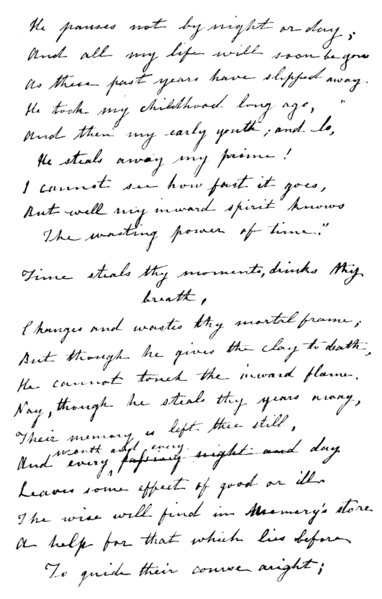 He pauses not by night or day;
And all my life will soon be gone
As these past years have slipped away.
He took my childhood long ago, "
And then my early youth; and lo,
He steals away my prime!
I cannot see how fast it goes,
But well my inward spirit knows
The wasting power of time."
Time steals thy moments, drinks thy
breath,
Changes and wastes thy mortal frame;
But though he gives the clay to death,
He cannot touch the inward flame.
Nay, though he steals thy years away,
Their memory is left thee still,
month and every
And every, passing night and day
Leaves some effect of good or ill.
The wise will find in Memory's store
A help for that which lies before
To guide their course aright;